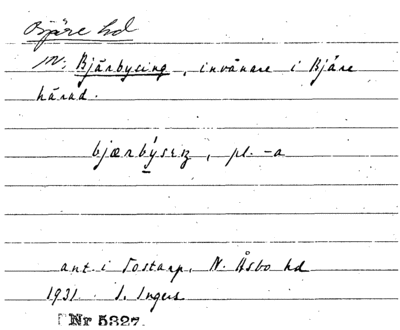 Bjäre hd
N: Bjärbysing, invånare i Bjäre
härad.
bjærbýseŋ, pl. -a
ant. i Tostarp, N. Åsbo hd
1931. I. Ingers
Nr 5327.